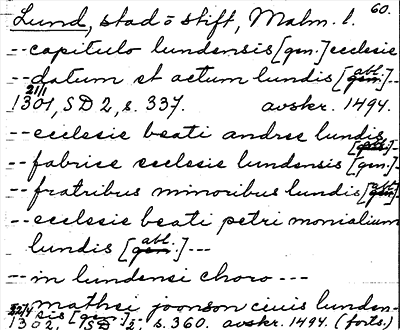 60.
Lund, stad o stift, Malm. l.
-- capitulo lundensis [gen.] ecclesie
-- datum et actum lundis [abl.] --
2/11
1301, SD 2, s. 337. avskr. 1494.
-- ecclesie beati andree lundis [abl.] --
-- fabrice ecclesie lundensis [gen.] --
-- fratribus minoribus lundis [abl.] --
-- ecclesie beati petri monialium
lundis [abl.] ---
-- in lundensi choro ---
-- mathei joonson ciuis lunden-
sis [gen.] --
1302, SD 2, s. 360. avskr. 1494. (forts.)